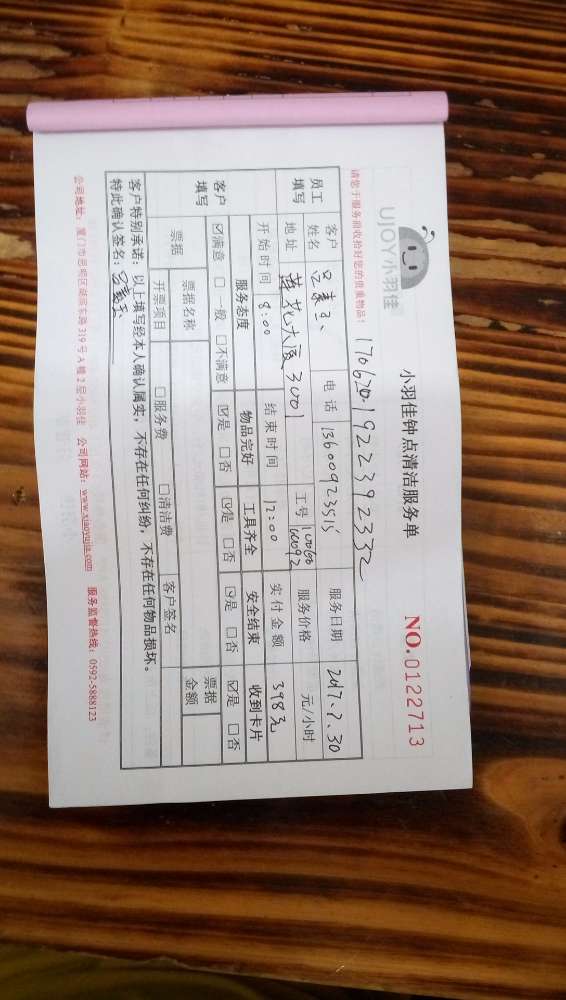 UJOY小羽佳
小羽佳钟点清洁服务单
NO.0122713
请您于服务前收拾好您的贵重物品！
1706201922392332
员工填写
客户姓名
电话 13600923515
服务日期 2017、7.30
地址 莲花大厦3001
工号 10060 60092
服务价格 元/小时
开始时间 8:00
结束时间 12:00
实付金额 398元
客户填写
服务态度 物品完好 工具齐全 安全结束 收到卡片
☑满意 □一般 □不满意 ☑是 □否 ☑是 □否 ☑是 □否 ☑是 □否
票据
票据名称
票据金额
开票项目 □服务费 □清洁费 客户签名
客户特别承诺：以上填写经本人确认属实，不存在任何纠纷，不存在任何物品损坏。
特此确认签名：
公司地址：厦门市思明区湖滨东路319号A幢2层小羽佳 公司网站：www.xiaoyujia.com 服务监督热线：0592-5888123